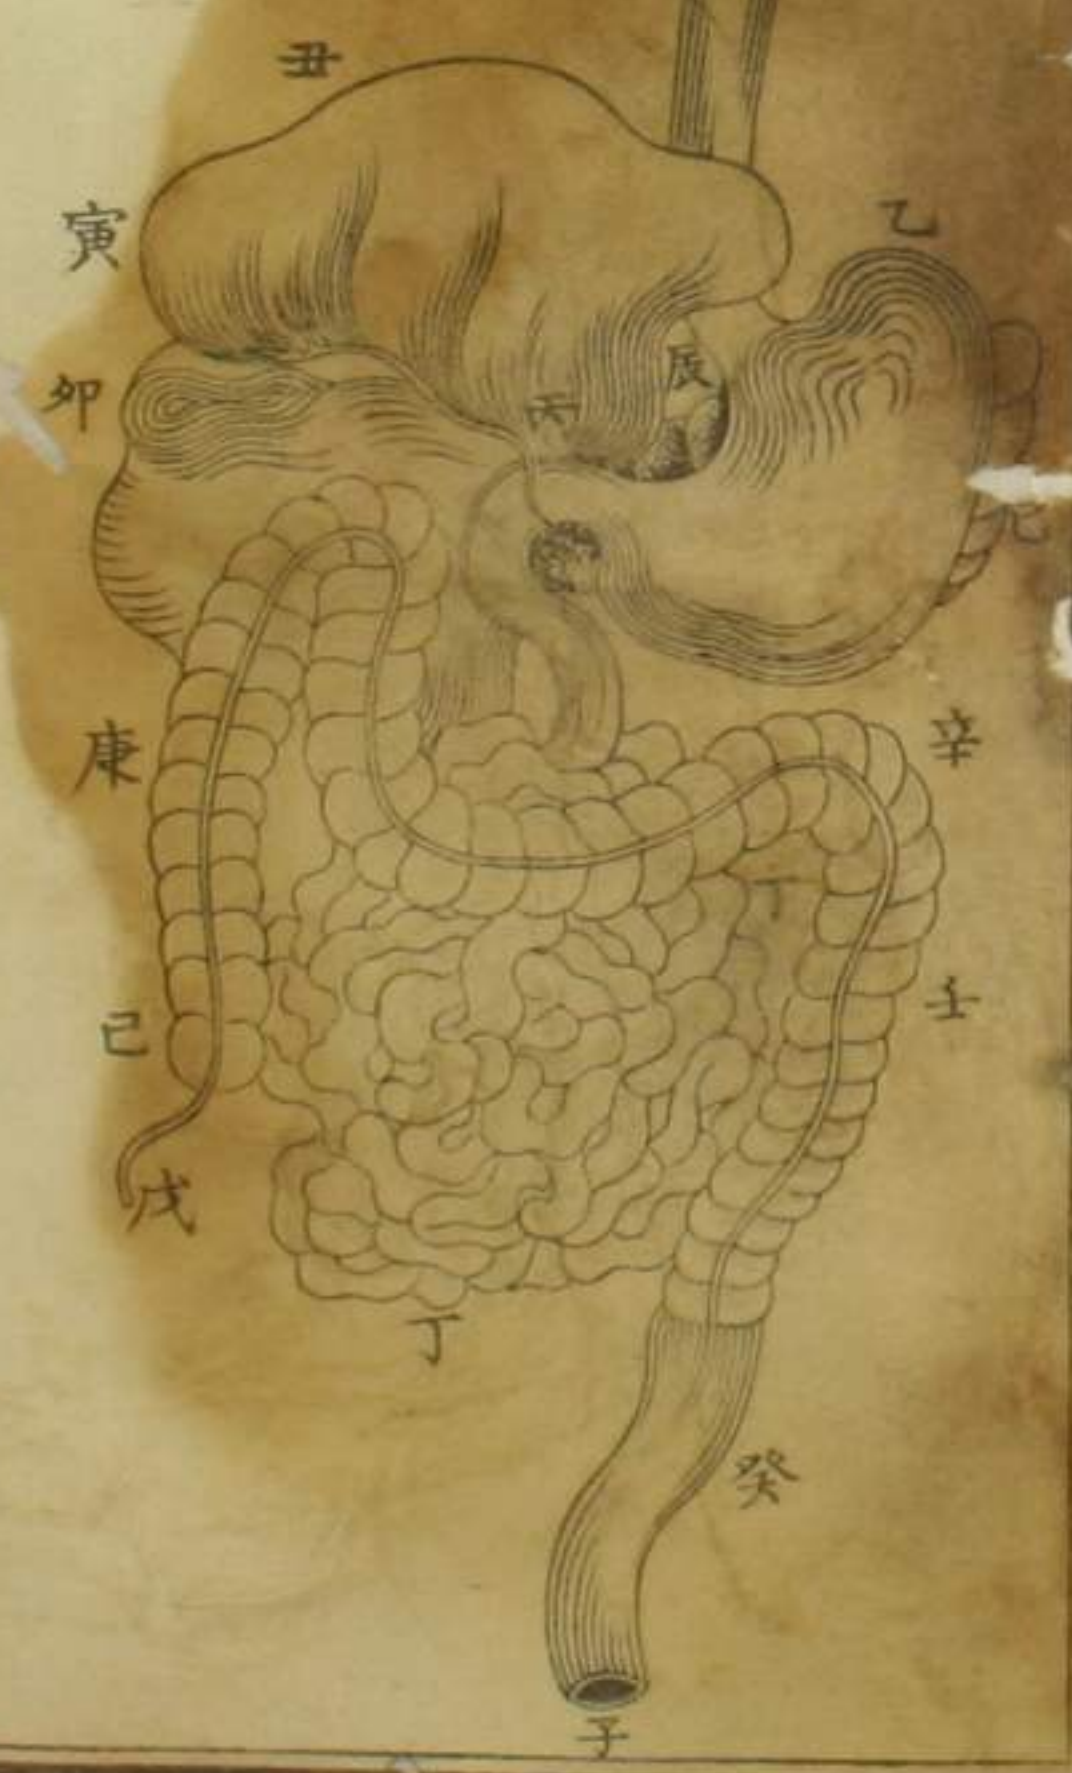 丑
寅
乙
卯
辰
丙
庚
辛
丁
己
壬
戊
丁
癸
子